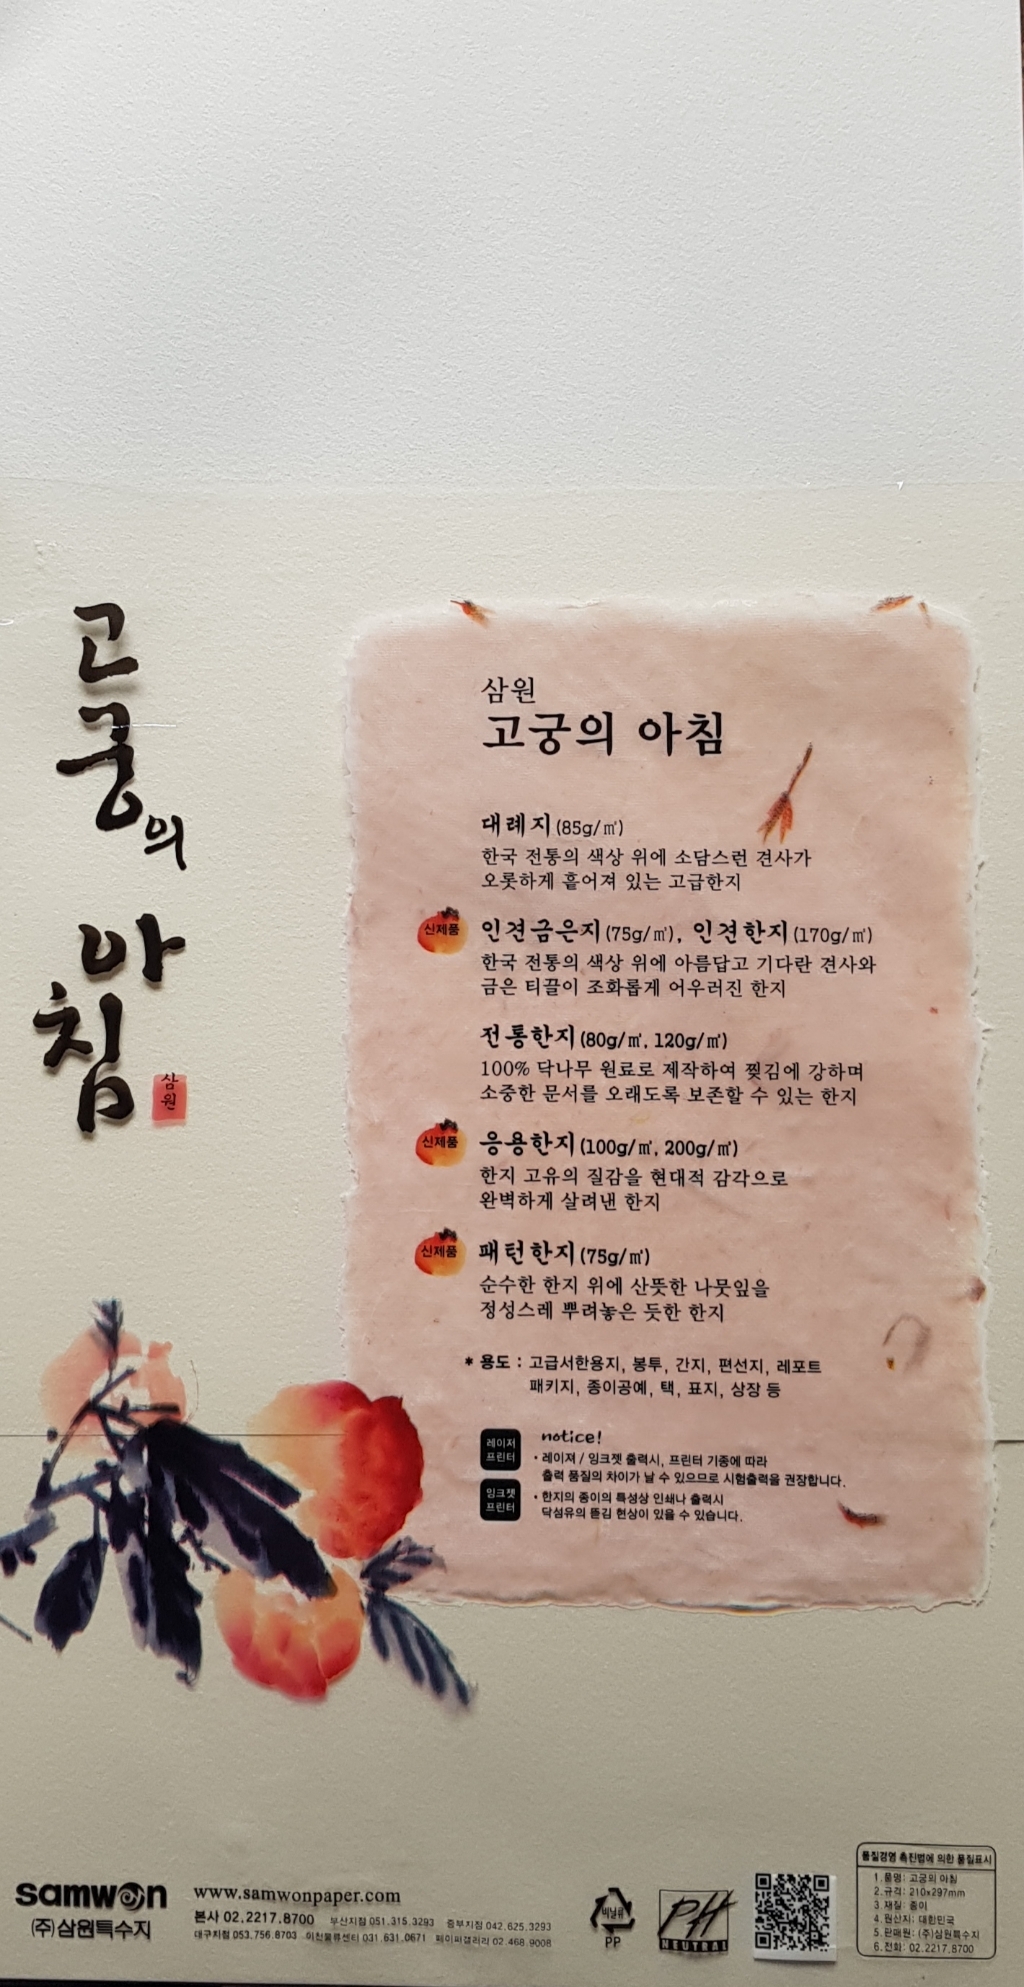 고궁의
아침
삼원
삼원
고궁의 아침
대례지 (85g/㎡)
한국 전통의 색상 위에 소담스런 견사가
오롯하게 흩어져 있는 고급한지
신제품
인견금은지 (75g/㎡), 인견한지 (170g/㎡)
한국 전통의 색상 위에 아름답고 기다란 견사와
금은 티끌이 조화롭게 어우러진 한지
전통한지 (80g/㎡, 120g/㎡)
100% 닥나무 원료로 제작하여 찢김에 강하며
소중한 문서를 오래도록 보존할 수 있는 한지
신제품
응용한지 (100g/㎡, 200g/㎡)
한지 고유의 질감을 현대적 감각으로
완벽하게 살려낸 한지
신제품
패턴한지 (75g/㎡)
순수한 한지 위에 산뜻한 나뭇잎을
정성스레 뿌려놓은 듯한 한지
* 용도 : 고급서한용지, 봉투, 간지, 편선지, 레포트
패키지, 종이공예, 택, 표지, 상장 등
레이저
프린터
notice!
· 레이져 / 잉크젯 출력시, 프린터 기종에 따라
출력 품질의 차이가 날 수 있으므로 시험출력을 권장합니다.
잉크젯
프린터
· 한지의 종이의 특성상 인쇄나 출력시
닥섬유의 뜯김 현상이 있을 수 있습니다.
samwon
(주)삼원특수지
www.samwonpaper.com
본사 02.2217.8700 부산지점 051.315.3293 중부지점 042.625.3293
대구지점 053.756.8703 이천물류센터 031.631.0671 페이퍼갤러리 02.468.9008
비닐류
PP
PH
NEUTRAL
품질경영 촉진법에 의한 품질표시
1. 품명: 고궁의 아침
2. 규격: 210x297mm
3. 재질: 종이
4. 원산지: 대한민국
5. 판매원: (주)삼원특수지
6. 전화: 02.2217.8700